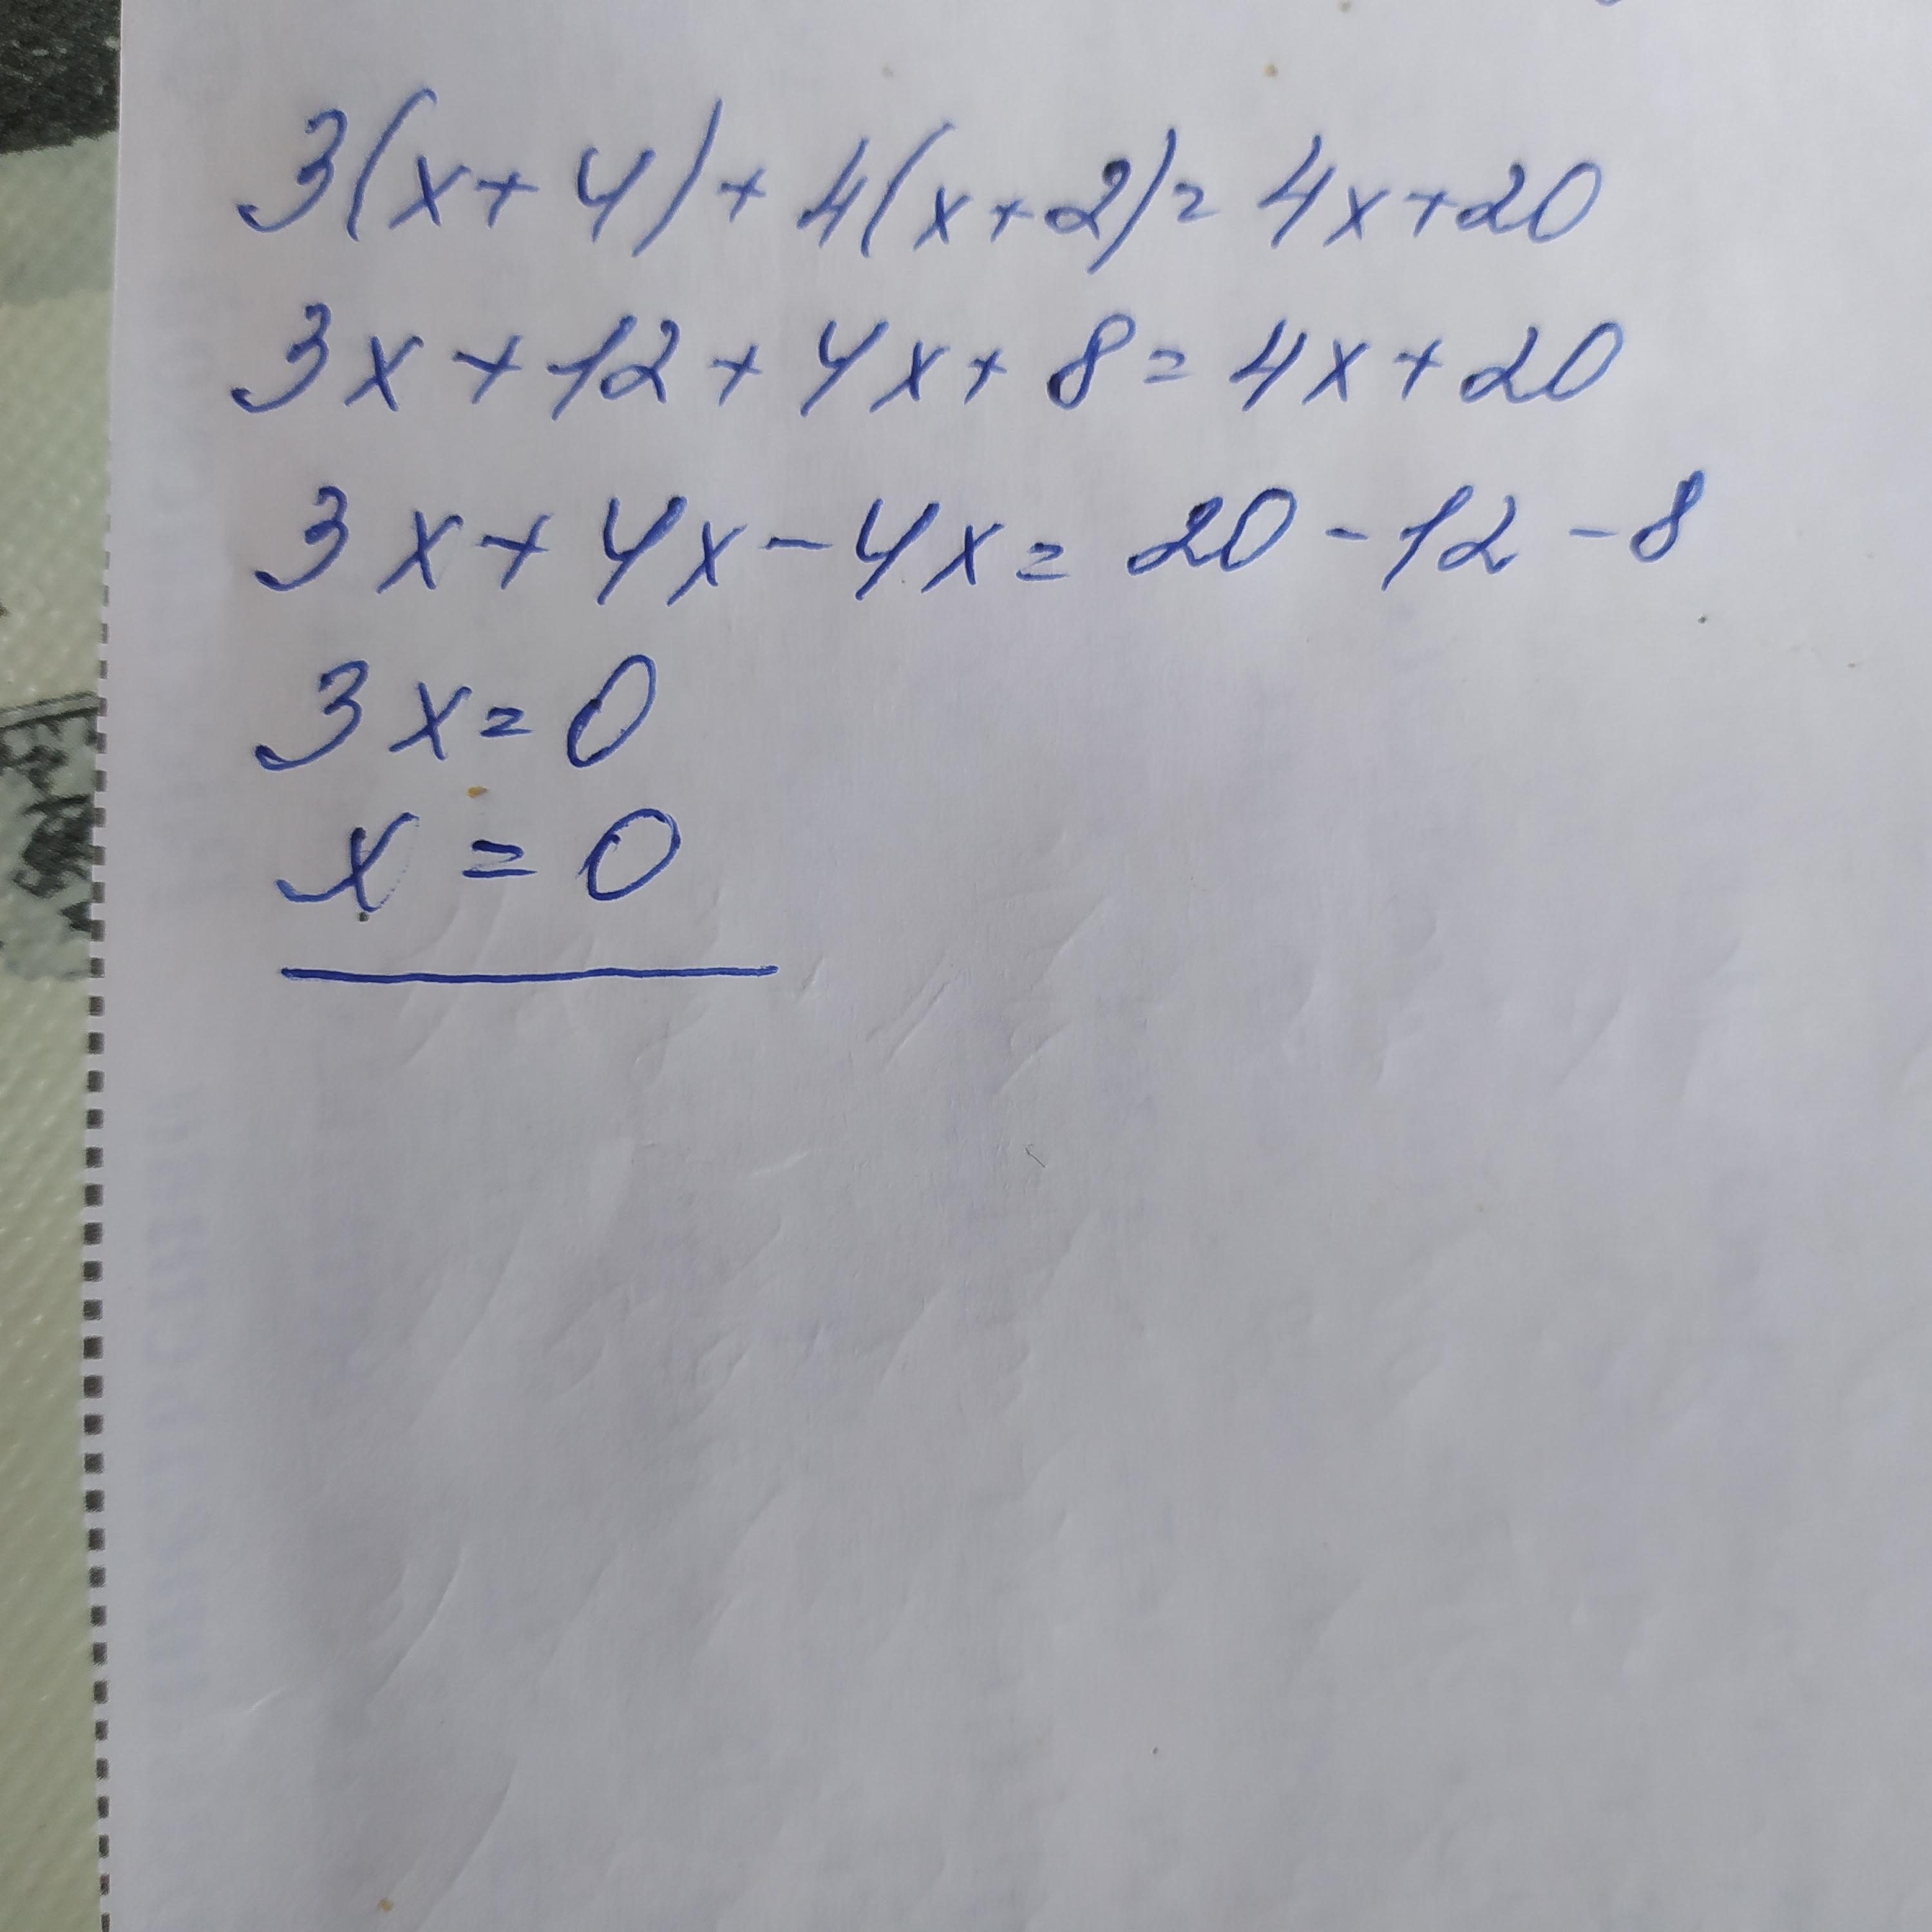 3(x+4)+4(x+2)=4x+20
3x+12+4x+8=4x+20
3x+4x-4x=20-12-8
3x=0
x=0